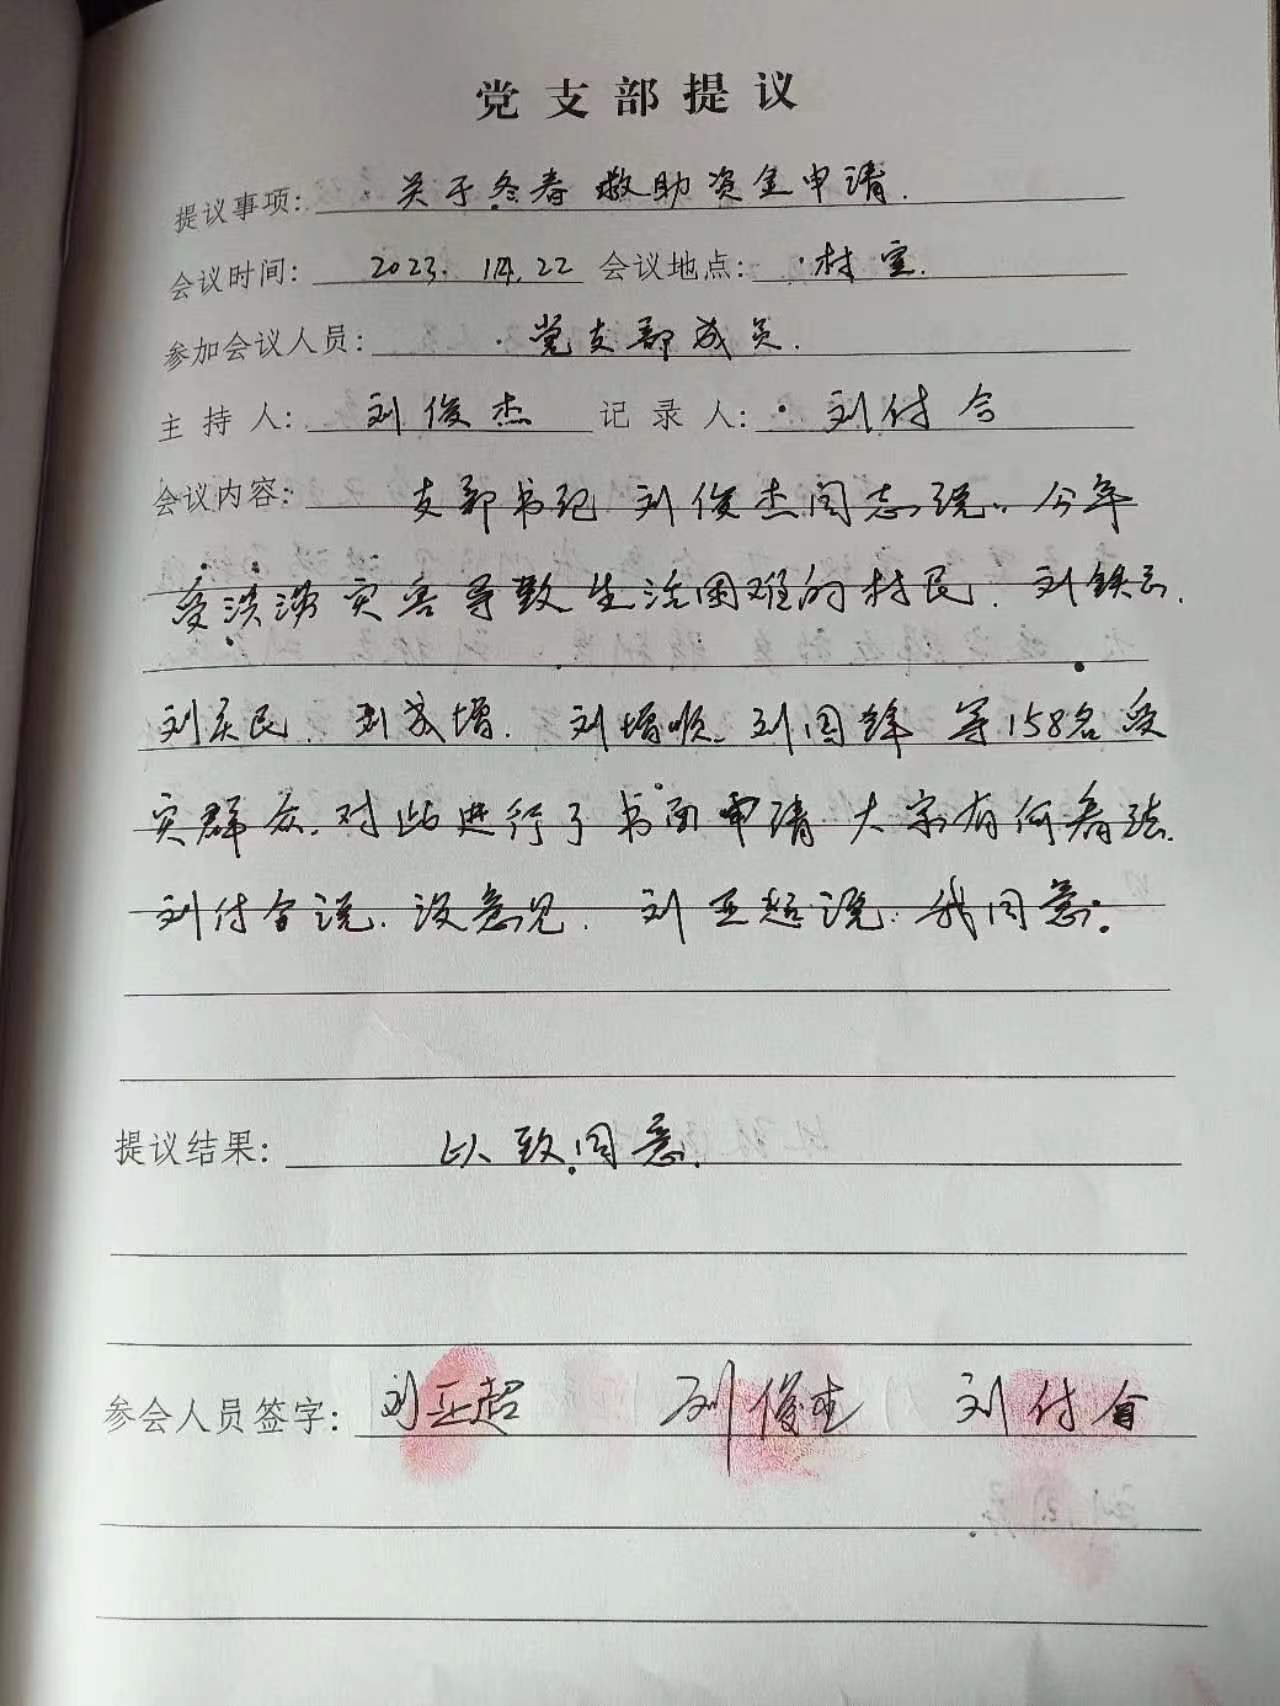 党支部提议
提议事项: 关于冬春救助资金申请.
会议时间: 2023. 22 会议地点: 村室.
参加会议人员: 党支部成员.
主持人: 刘俊杰 记录人: 刘付合
会议内容: 支部书记刘俊杰同志说. 今年
受洪涝灾害导致生活困难的村民. 刘铁
刘庆民. 刘成增. 刘增顺. 刘国锋 等158名受
灾群众. 对此进行了书面申请 大家有何看法.
刘付合说. 没意见. 刘亚超说. 我同意.
提议结果: 以致同意.
参会人员签字: 刘亚超 刘俊杰 刘付合